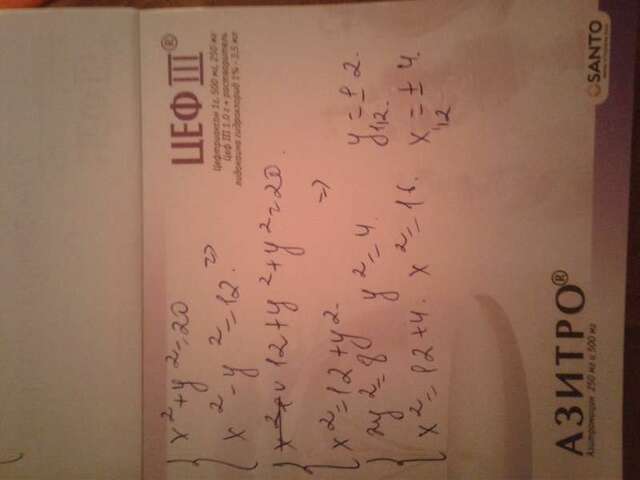 ЦЕФ III®
Цефтриаксон 1г, 500 мг, 250 мг
Цеф III 1.0 г + растворитель
лидокаина гидрохлорид 1% - 3,5 мл
SANTO
x²+y²=20
x²-y²=12. =>
12+y²+y²=20.
x²=12+y². =>
2y²=8 y²=4. y₁,₂=±2.
x²=12+4. x²=16. x₁,₂=±4.
АЗИТРО®
Азитромицин 250 мг и 500 мг